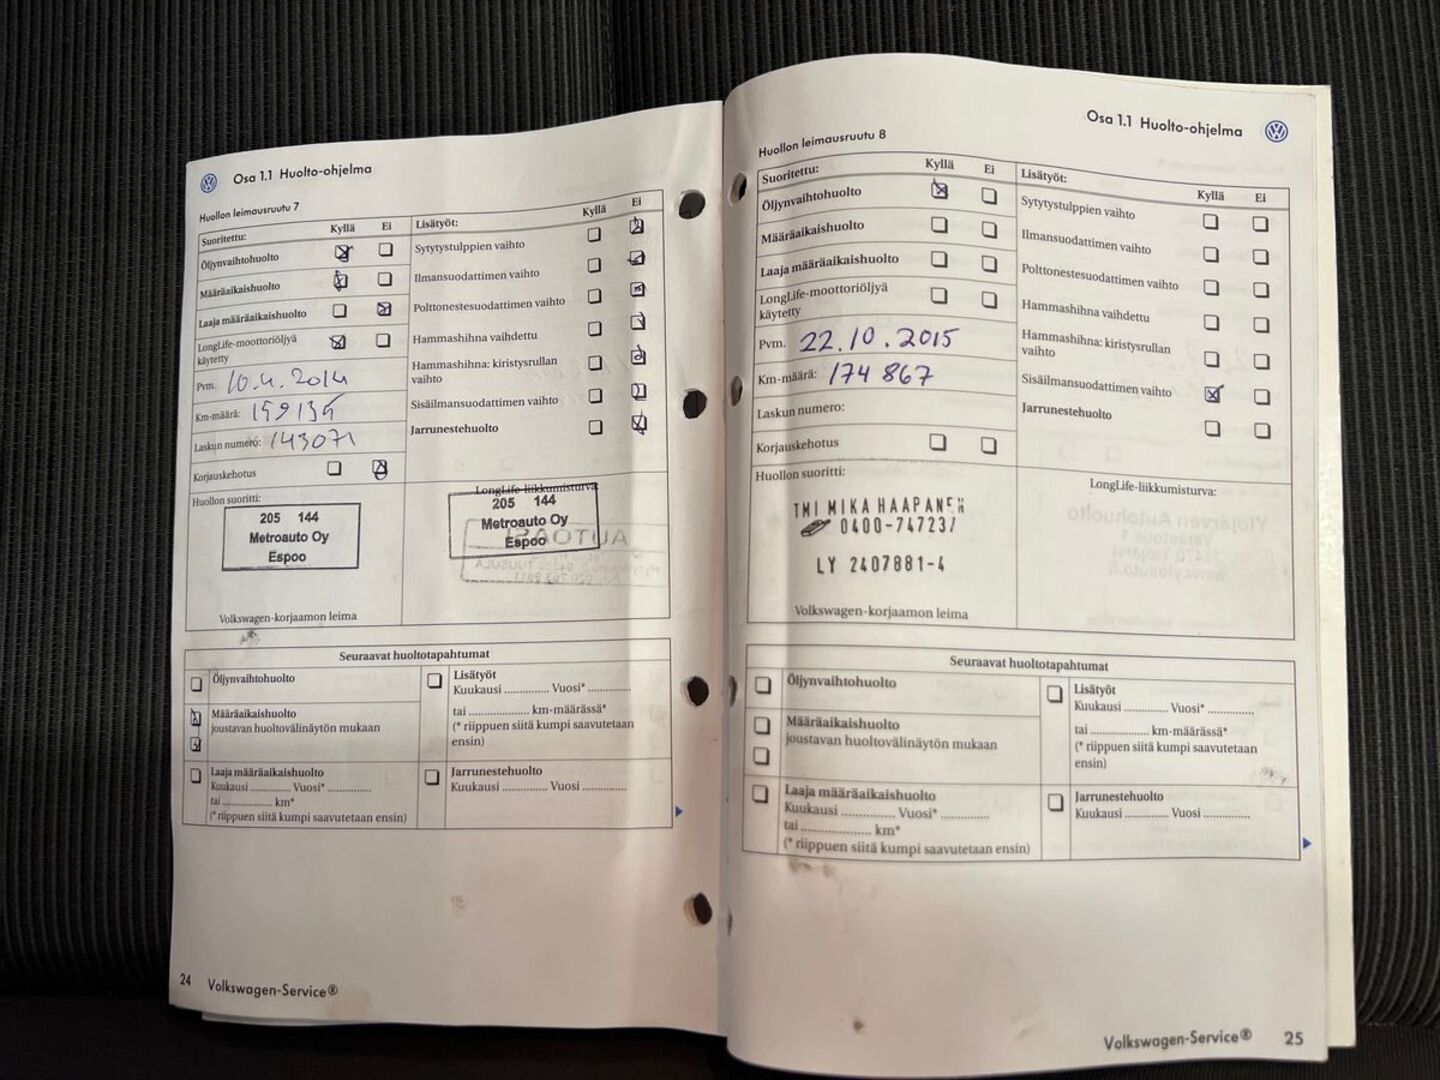 Osa 1.1 Huolto-ohjelma
Huollon leimausruutu 7
Suoritettu: Kyllä Ei
Öljynvaihtohuolto
Määräaikaishuolto
Laaja määräaikaishuolto
LongLife-moottoriöljyä
käytetty
Pvm. 10.4.2014
Km-määrä: 159135
Laskun numero: 143071
Korjauskehotus
Lisätyöt: Kyllä Ei
Sytytystulppien vaihto
Ilmansuodattimen vaihto
Polttonestesuodattimen vaihto
Hammashihna vaihdettu
Hammashihna: kiristysrullan
vaihto
Sisäilmansuodattimen vaihto
Jarrunestehuolto
Huollon suoritti:
205 144
Metroauto Oy
Espoo
Volkswagen-korjaamon leima
LongLife-liikkumisturva:
205 144
Metroauto Oy
Espoo
Seuraavat huoltotapahtumat
Öljynvaihtohuolto
Määräaikaishuolto
joustavan huoltovälinäytön mukaan
Laaja määräaikaishuolto
Kuukausi .............. Vuosi* ...............
tai ................. km*
(* riippuen siitä kumpi saavutetaan ensin)
Lisätyöt
Kuukausi ............... Vuosi* ..............
tai .................... km-määrässä*
(* riippuen siitä kumpi saavutetaan
ensin)
Jarrunestehuolto
Kuukausi ............... Vuosi ...............
24 Volkswagen-Service®
Osa 1.1 Huolto-ohjelma
Huollon leimausruutu 8
Suoritettu: Kyllä Ei
Öljynvaihtohuolto
Määräaikaishuolto
Laaja määräaikaishuolto
LongLife-moottoriöljyä
käytetty
Pvm. 22.10.2015
Km-määrä: 174 867
Laskun numero:
Korjauskehotus
Lisätyöt: Kyllä Ei
Sytytystulppien vaihto
Ilmansuodattimen vaihto
Polttonestesuodattimen vaihto
Hammashihna vaihdettu
Hammashihna: kiristysrullan
vaihto
Sisäilmansuodattimen vaihto
Jarrunestehuolto
Huollon suoritti:
TMI MIKA HAAPANEN
0400-747237
LY 2407881-4
Volkswagen-korjaamon leima
LongLife-liikkumisturva:
Seuraavat huoltotapahtumat
Öljynvaihtohuolto
Määräaikaishuolto
joustavan huoltovälinäytön mukaan
Laaja määräaikaishuolto
Kuukausi ................ Vuosi* ..............
tai ..................... km*
(* riippuen siitä kumpi saavutetaan ensin)
Lisätyöt
Kuukausi ............. Vuosi* ..............
tai .................. km-määrässä*
(* riippuen siitä kumpi saavutetaan
ensin)
Jarrunestehuolto
Kuukausi ............. Vuosi ..............
Volkswagen-Service® 25